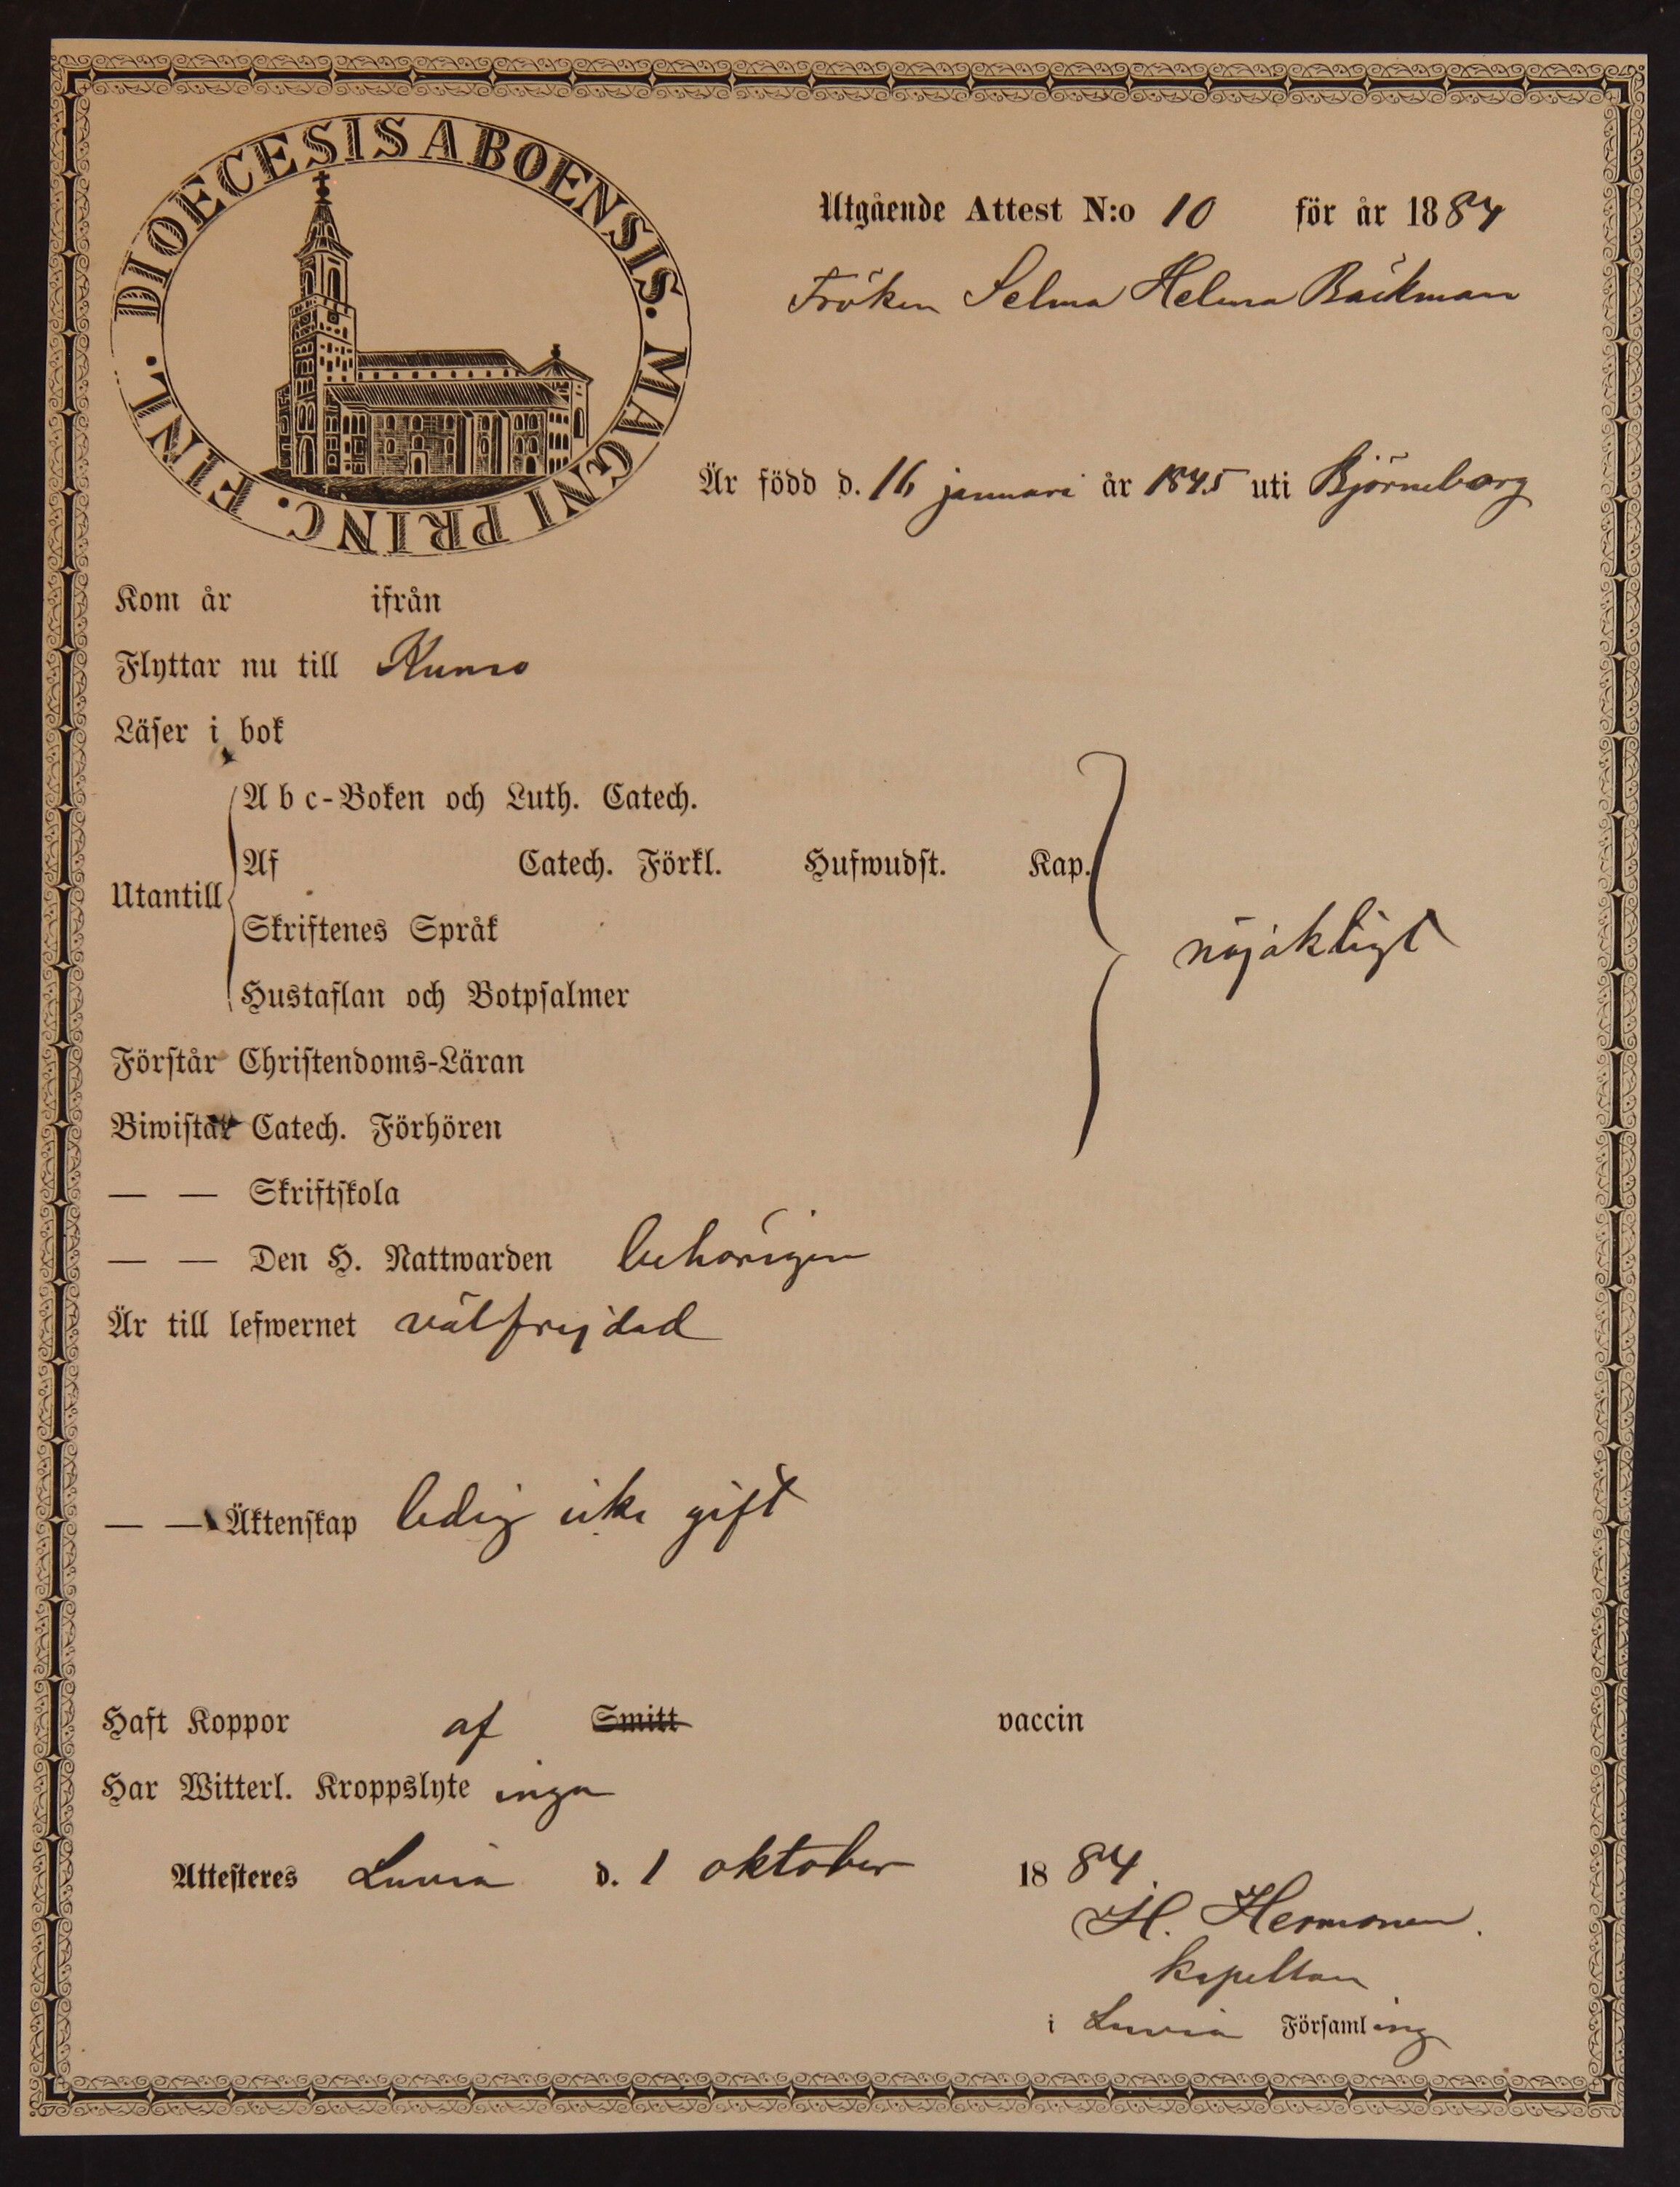 DIOECESIS ABOENSIS. MAGNI PRINC. FINL.
Utgående Attest N:o 10 för år 1884
Fröken Selma Helena Bäckman
Är född d. 16 januari år 1845 uti Björneborg
Kom år ifrån
Flyttar nu till Kumo
Läser i bok
Abc-Boken och Luth. Catech.
Af Catech. Förkl. Hufwudst. Kap.
Utantill
Skriftenes Språk
nöjaktigt
Hustaflan och Botpsalmer
Förstår Christendoms-Läran
Biwistat Catech. Förhören
— — Skriftskola
— — Den H. Nattwarden behörigen
Är till lefwernet välfrejdad
— — Äktenskap ledig icke gift
Haft Koppor af Smitt vaccin
Har Witterl. Kroppslyte inga
Attesteres Luvia d. 1 oktober 1884
H. Hermonen.
kapellan
i Luvia Församling